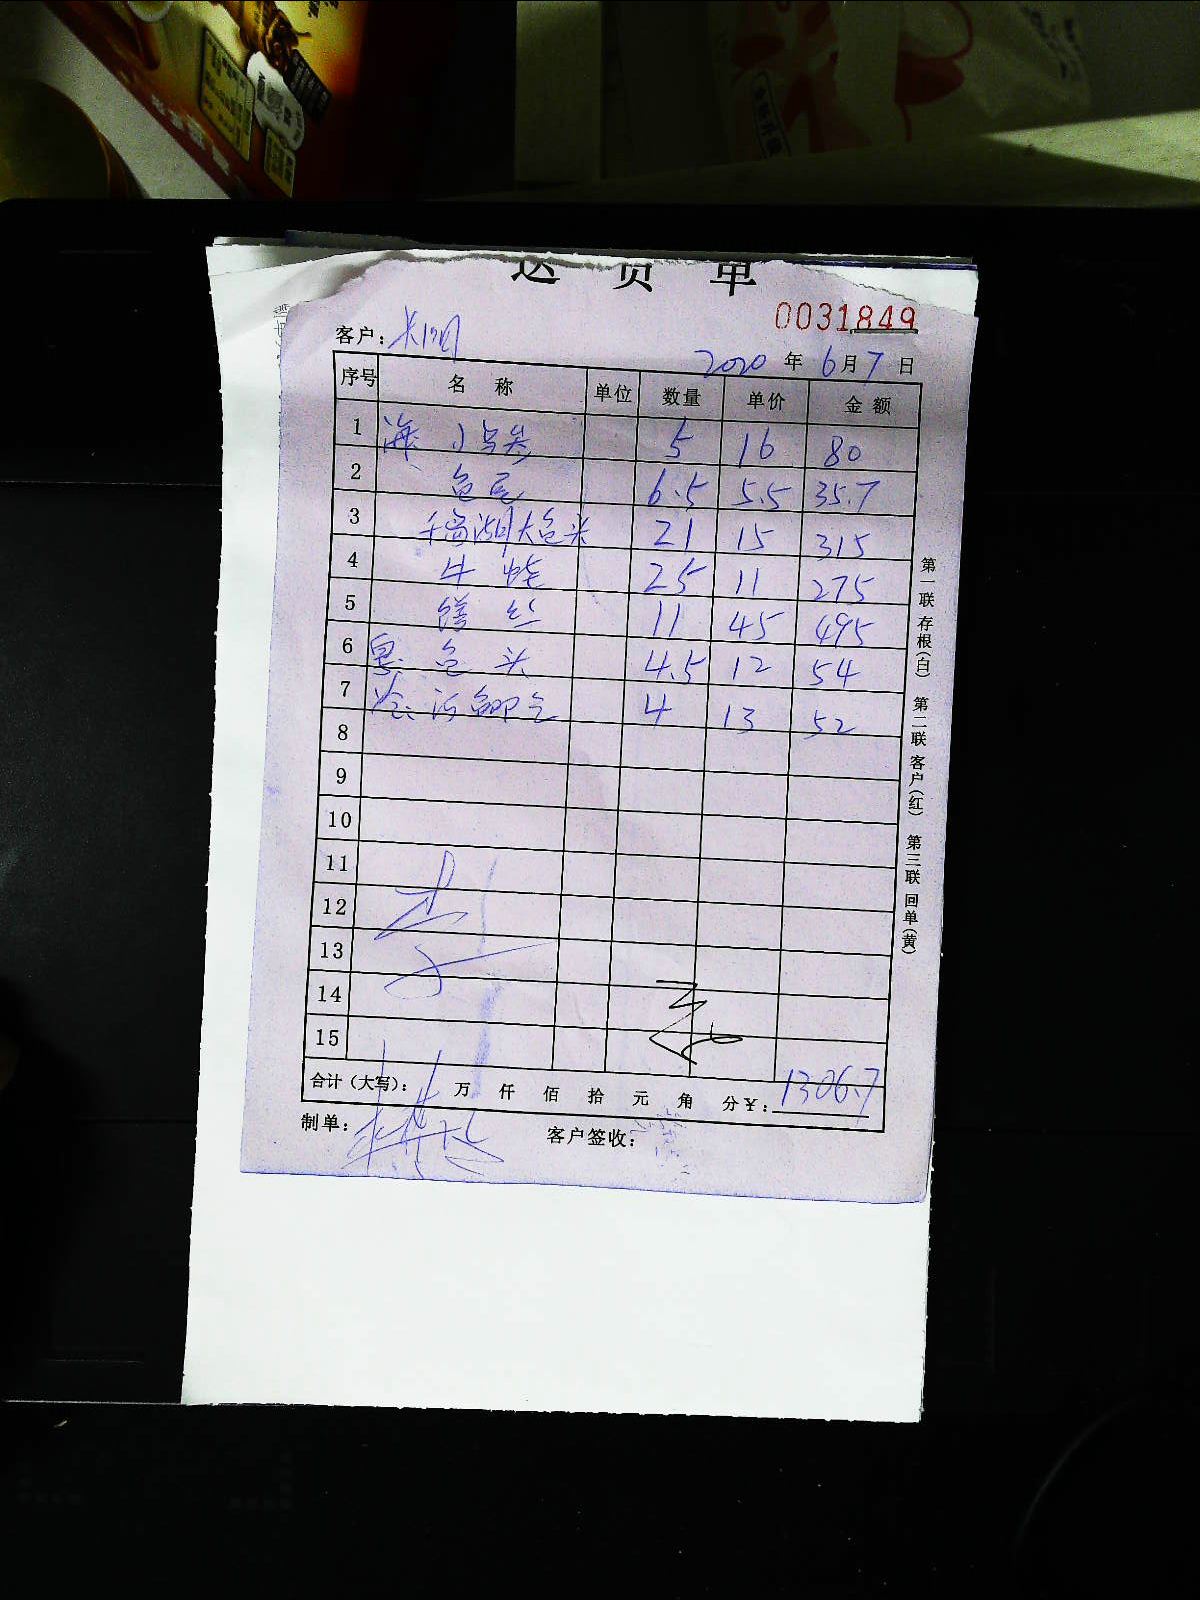 送 货 单
0031849
客户:
2020 年 6 月 7 日
序号 名 称 单位 数量 单价 金 额
1 海 小 5 16 80
2 鱼尾 6.5 5.5 35.7
3 千岛湖大鱼头 21 15 315
4 牛蛙 25 11 275
5 鳝 丝 11 45 495
6 黑 鱼 头 4.5 12 54
7 4 13 52
8
9
10
11
12
13
14
15
合计(大写): 万 仟 佰 拾 元 角 分 ¥: 1306.7
制单: 客户签收:
第一联 存根(白) 第二联 客户(红) 第三联 回单(黄)